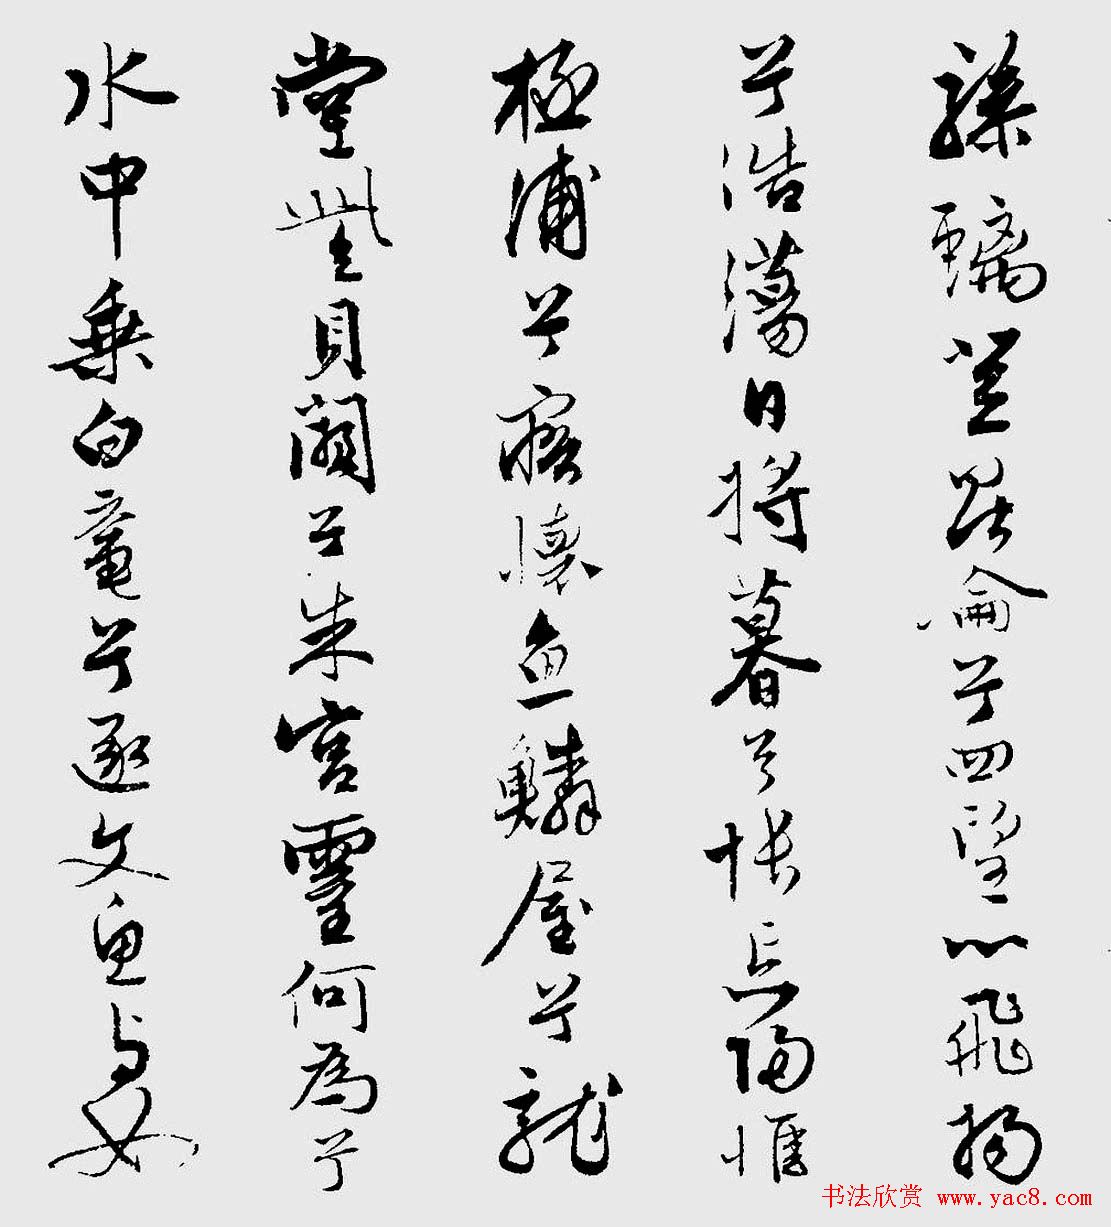 驂螭登昆侖兮四望心飛揚
兮浩蕩日將暮兮悵忘歸惟
極浦兮寤懷魚鱗屋兮龍
堂紫貝闕兮朱宮靈何為兮
水中乘白黿兮逐文魚与女
书法欣赏 www.yac8.com